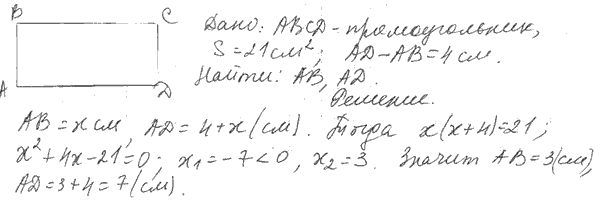 B C
Дано: ABCD - прямоугольник,
S = 21 см²; AD - AB = 4 см.
Найти: AB, AD.
A D
Решение.
AB = x см, AD = 4 + x (см). Тогда x(x+4) = 21;
x² + 4x - 21 = 0; x₁ = -7 < 0, x₂ = 3. Значит AB = 3 (см),
AD = 3 + 4 = 7 (см).